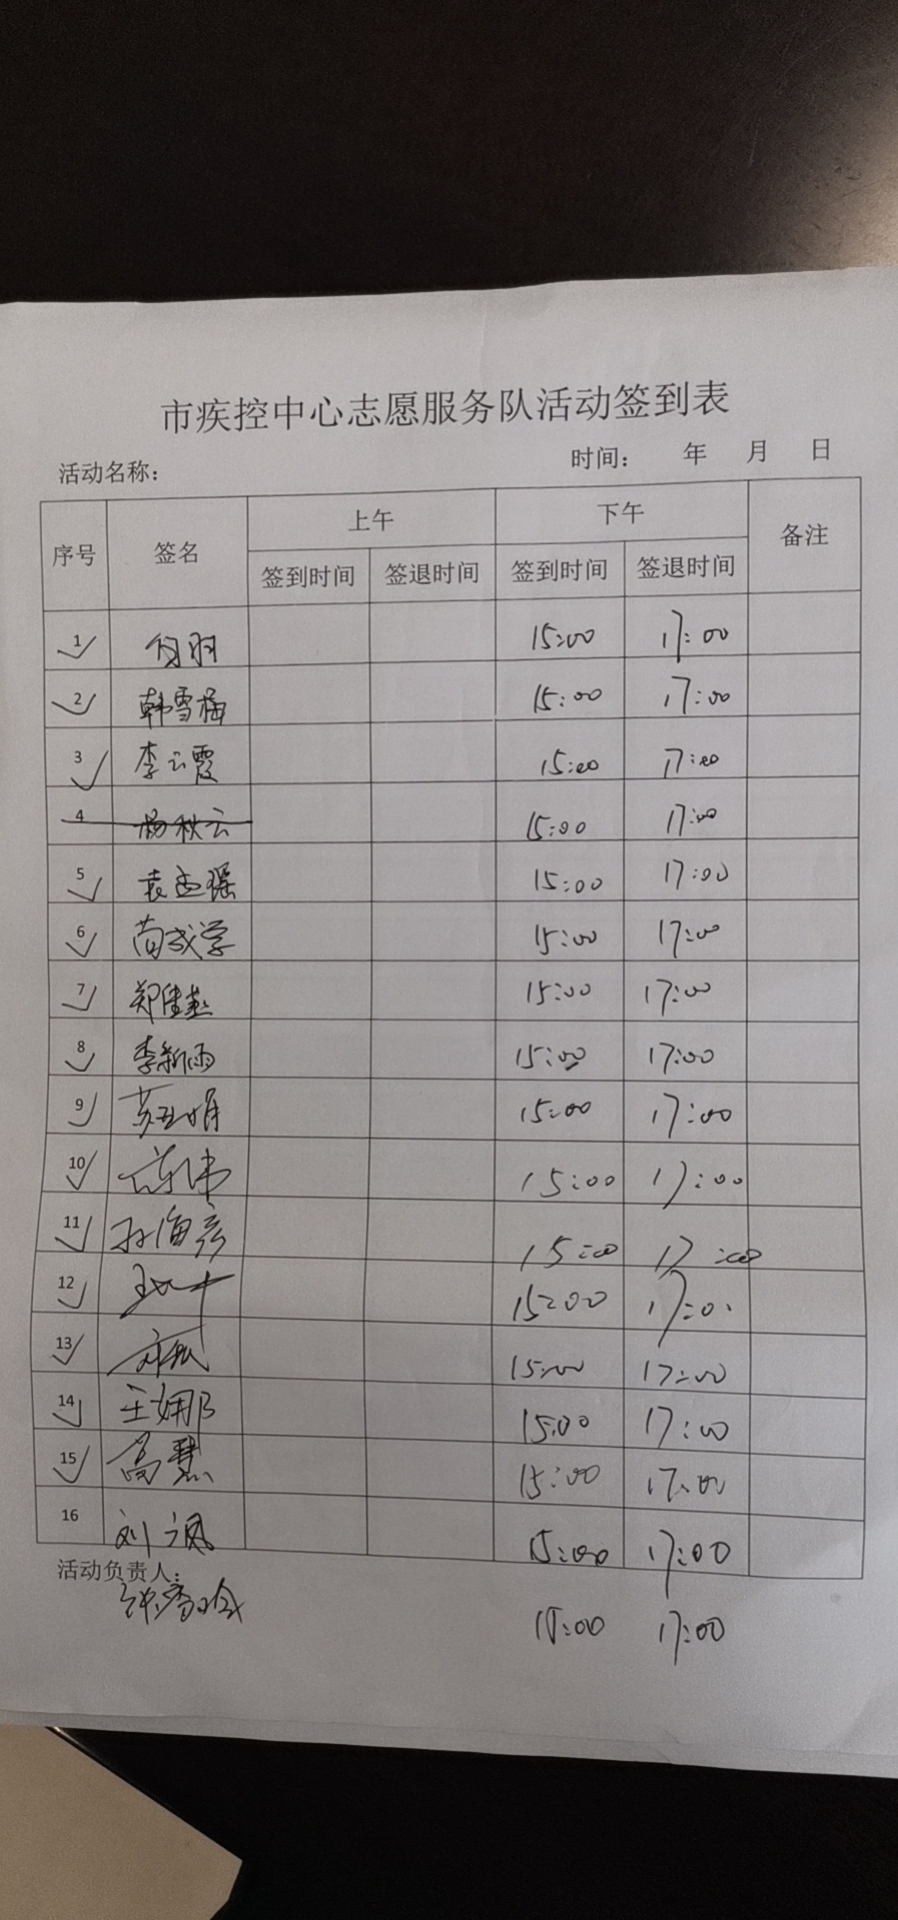 市疾控中心志愿服务队活动签到表
活动名称： 时间： 年 月 日
序号 签名 上午 下午 备注
签到时间 签退时间 签到时间 签退时间
1 15:00 17:00
2 韩雪梅 15:00 17:00
3 李云霞 15:00 17:00
4 杨秋云 15:00 17:00
5 15:00 17:00
6 15:00 17:00
7 15:00 17:00
8 李新雨 15:00 17:00
9 15:00 17:00
10 15:00 17:00
11 孙海彦 15:00 17:00
12 15:00 17:00
13 15:00 17:00
14 王娜 15:00 17:00
15 高慧 15:00 17:00
16 15:00 17:00
活动负责人：
15:00 17:00